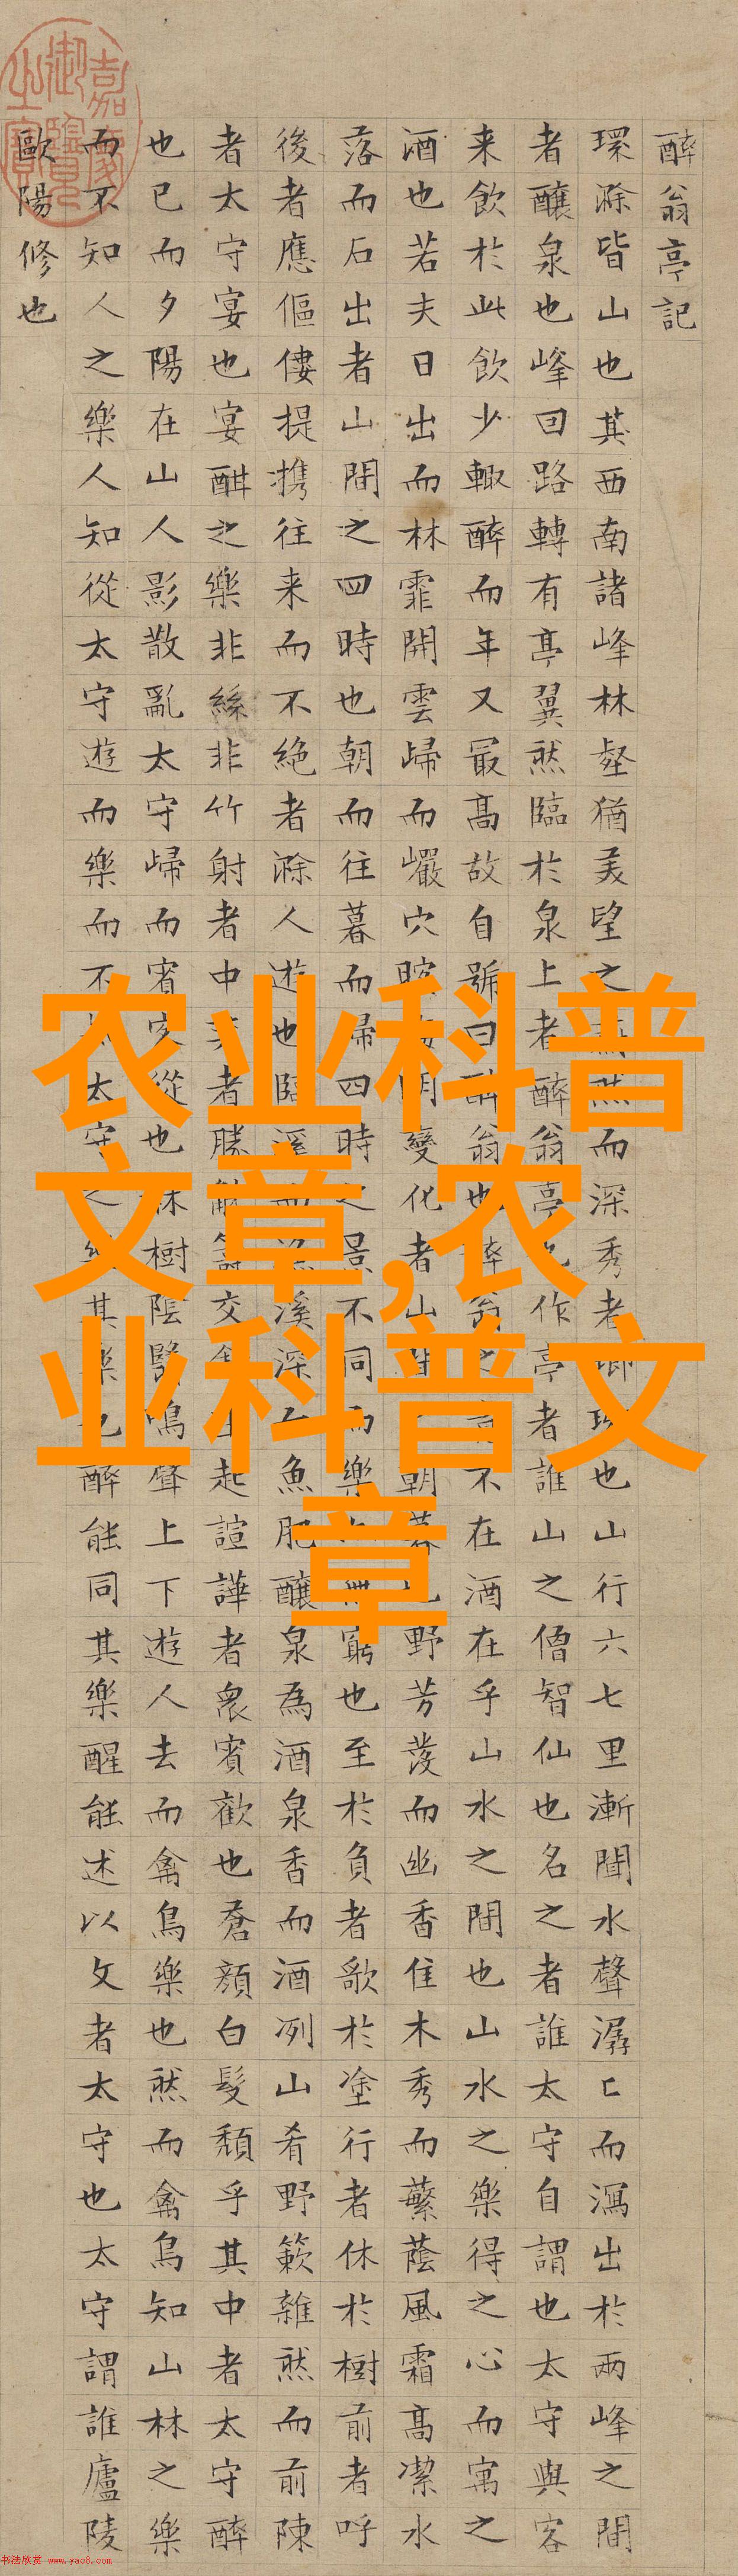 醉翁亭記
環滁皆山也其西南諸峰林壑猶美望之而深秀者也山行六七里漸聞水聲潺〻而瀉出於兩峰之間
者釀泉也峰回路轉有亭翼然臨於泉上者醉翁亭作亭者誰山之僧智仙也名之者誰太守自謂也太守與客
来飲於此飲少輙醉而年又最高故自號曰翁也醉翁之不在酒在乎山水之間也山水之樂得之心而寓之
酒也若夫日出而林霏開雲歸而巖穴暝明變化者山朝暮野芳發而幽香佳木秀而蘩蔭風霜高潔水
落而石出者山間之四時也朝而往暮而歸四時之景不同而樂窮也至於負者歌於塗行者休於樹前者呼
後者應傴僂提攜往来而不絕者滁人遊也臨溪漁溪深魚肥釀泉為酒泉香而酒冽山肴野簌雜然而前陳
者太守宴也宴酣之樂非絲非竹射者中者勝籌交起諠譁者衆賓歡也蒼顏白髮頹乎其中者太守醉
也已而夕陽在山人影散亂太守歸而賓客從也林樹陰翳鳴聲上下遊人去而禽鳥樂也然而禽鳥知山林之樂
而不知人之樂人知從太守遊而樂而不太守之其樂也醉能同其樂醒能述以文者太守也太守謂誰廬陵
歐陽修也
嘉慶御覽之寶
农业科普
文章,农
业科普文
章
书法欣赏 www.yac8.com